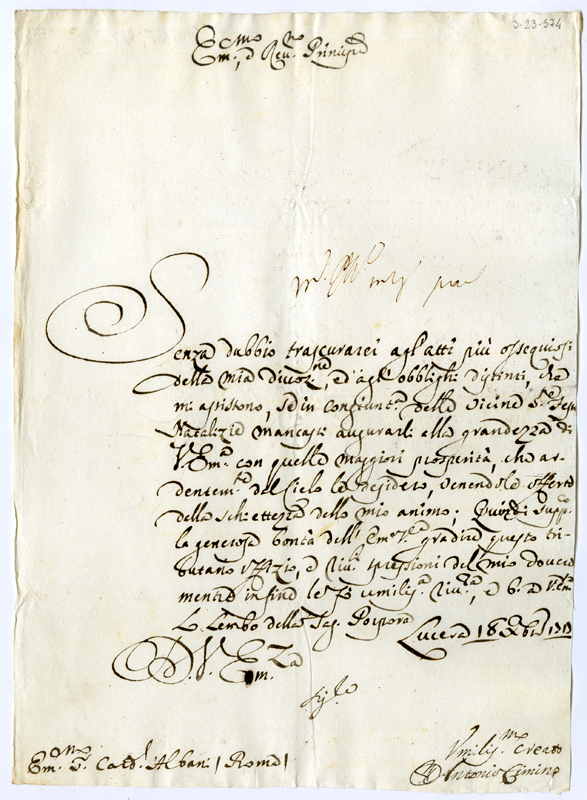 3-23-574
Em.mo e Rev.mo Principe
Senza dubbio trascurarei agl'atti più ossequiosi
della mia divoz.ne, ed agl'obblighi distinti, che
mi assistono, se in congiunt.a della vicina S.ta Festa
Natalizia mancassi augurarli alla grandezza di
V. Em.a con quelle maggiori prosperità, che ar-
dentem.te del Cielo le desidero, venendole offerte
dalla schiettezza dello mio animo; Quindi supp.
la generosa bontà dell' Em.a V.ra gradire questo tri-
butario uffizio, e riv.ti espressioni del mio dovere
mentre infine le fò umiliss.a riv.za, e b. a V. Em.a
Lo Lembo della Sag. Porpora
Lucera 18 Xbre 1719
D. V. Em.za
Em.mo S. Card.l Albani / Roma /
Umiliss.mo
Antonio Cimino